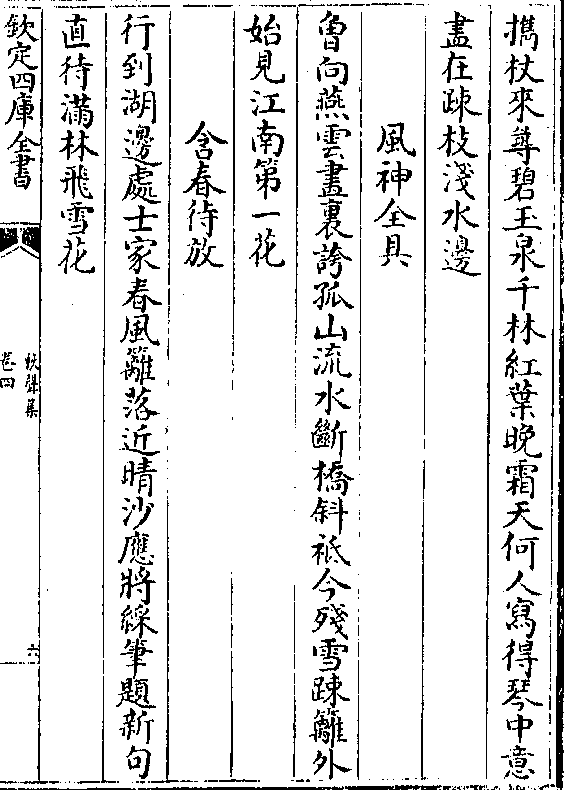 攜杖來尋碧玉泉千林紅葉晚霜天何人寫得琴中意
盡在踈枝淺水邊
風神全具
曾向燕雲畫裏誇孤山流水斷橋斜祗今殘雪踈籬外
始見江南第一花
含春待放
行到湖邊處士家春風籬落近晴沙應將綵筆題新句
直待滿林飛雪花
欽定四庫全書
秋聲集
卷四
六